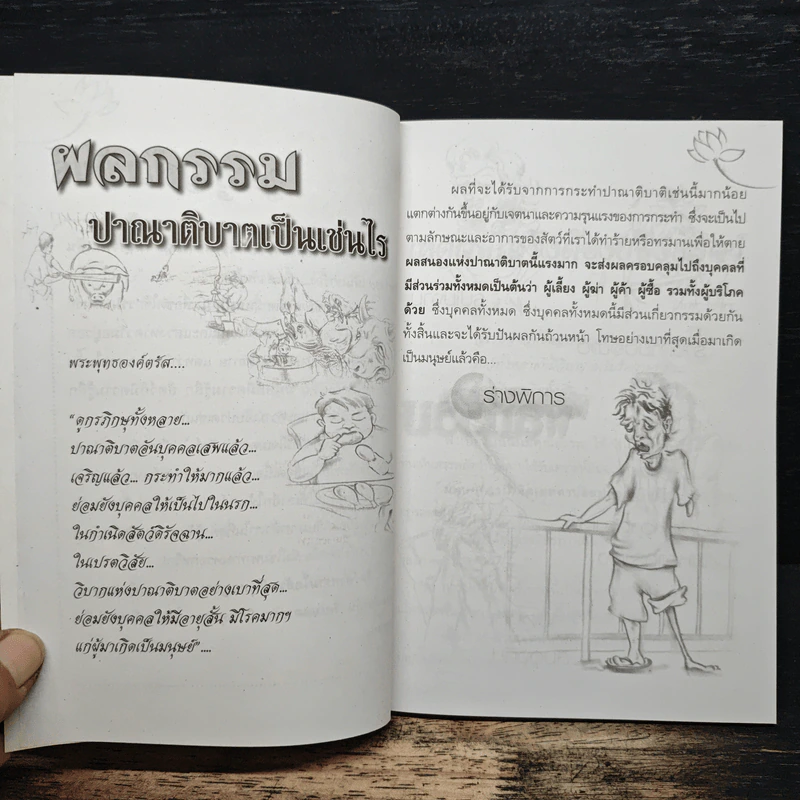 ผลกรรม
ปาณาติบาตเป็นเช่นไร
พระพุทธองค์ตรัส....
"ดูกรภิกษุทั้งหลาย...
ปาณาติบาตอันบุคคลเสพแล้ว...
เจริญแล้ว... กระทำให้มากแล้ว...
ย่อมยังบุคคลให้เป็นไปในนรก...
ในกำเนิดสัตว์ดิรัจฉาน...
ในเปรตวิสัย...
วิบากแห่งปาณาติบาตอย่างเบาที่สุด...
ย่อมยังบุคคลให้มีอายุสั้น มีโรคมากฯ
แก่ผู้มาเกิดเป็นมนุษย์"....
ผลที่จะได้รับจากการกระทำปาณาติบาติเช่นนี้มากน้อย
แตกต่างกันขึ้นอยู่กับเจตนาและความรุนแรงของการกระทำ ซึ่งจะเป็นไป
ตามลักษณะและอาการของสัตว์ที่เราได้ทำร้ายหรือทรมานเพื่อให้ตาย
ผลสนองแห่งปาณาติบาตนี้แรงมาก จะส่งผลครอบคลุมไปถึงบุคคลที่
มีส่วนร่วมทั้งหมดเป็นต้นว่า ผู้เลี้ยง ผู้ฆ่า ผู้ค้า ผู้ซื้อ รวมทั้งผู้บริโภค
ด้วย ซึ่งบุคคลทั้งหมด ซึ่งบุคคลทั้งหมดนี้มีส่วนเกี่ยวกรรมด้วยกัน
ทั้งสิ้นและจะได้รับปันผลกันถ้วนหน้า โทษอย่างเบาที่สุดเมื่อมาเกิด
เป็นมนุษย์แล้วคือ...
ร่างพิการ